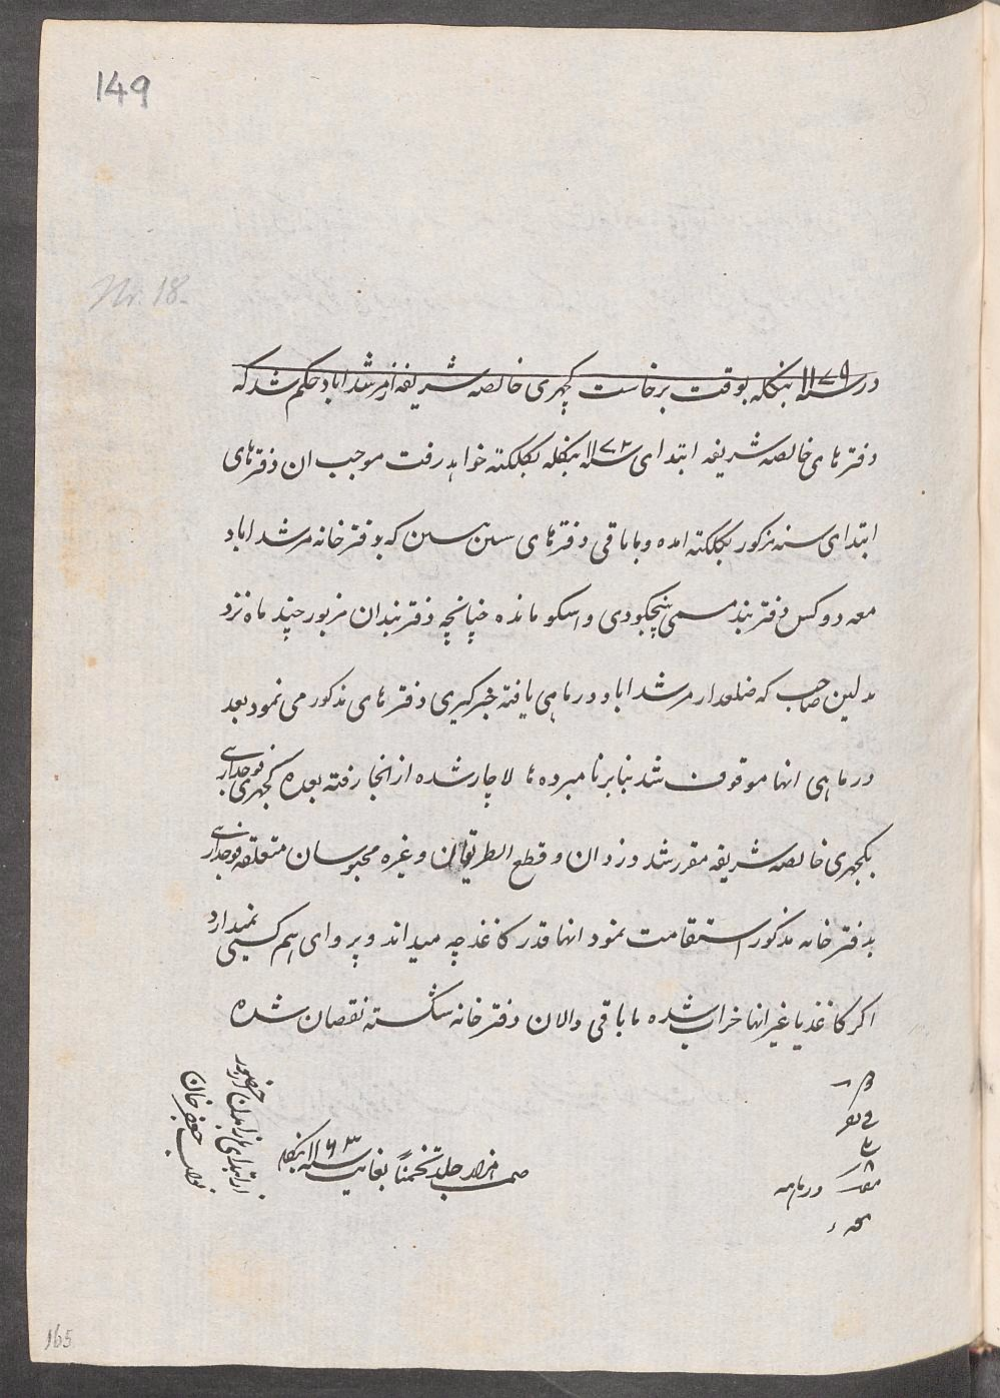 149
Nr. 18.
در سنه ۱۱۷۹ بنکله بوقت برخاست کچهری خالصه شریفه از مرشداباد حکم شد که
دفترهای خالصه شریفه ابتدای سنه ۱۱۷۲ بنکله بکلکته خواهد رفت موجب ان دفترهای
ابتدای سنه مذکور بکلکته امده و مابقی دفترهای سنین که بدفترخانه مرشداباد
معه دو کس دفتربند مسمی و مانده چنانچه دفتربندان مزبور چند ماه نزد
صاحب که ضلعدار مرشداباد درماهی یافته خبرکیری دفترهای مذکور می نمود بعد
درماهی انها موقوف شد بنابر نامبرده ها لاچار شده از انجا رفته بعده کچهری فوجداری
بکچهری خالصه شریفه مقرر شد دزدان و قطع الطریقان و غیره محبوسان متعلقه فوجداری
بدفترخانه مذکور استقامت نمود انها قدر کاغذ چه میداند و پروای هم کسی نمیدارد
اکر کاغذ یا غیر انها خراب شده مابقی دالان دفترخانه شکسته نقصان شده
جلد تخمناً بغایت سنه ۱۱۶۳ بنکله
از ابتدای
نواب جعفر خان
درماهه
165